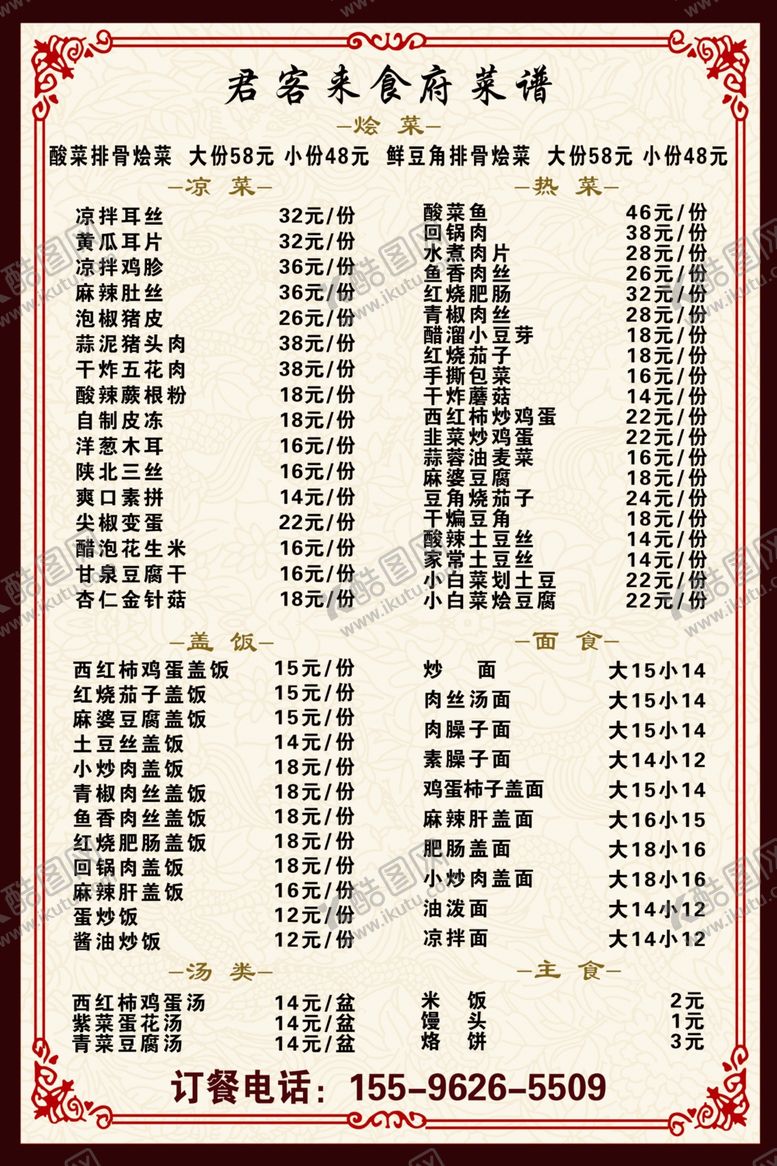 君客来食府菜谱
—烩 菜—
酸菜排骨烩菜 大份58元 小份48元 鲜豆角排骨烩菜 大份58元 小份48元
—凉 菜—
凉拌耳丝 32元/份
黄瓜耳片 32元/份
凉拌鸡胗 36元/份
麻辣肚丝 36元/份
泡椒猪皮 26元/份
蒜泥猪头肉 38元/份
干炸五花肉 38元/份
酸辣蕨根粉 18元/份
自制皮冻 18元/份
洋葱木耳 16元/份
陕北三丝 16元/份
爽口素拼 14元/份
尖椒变蛋 22元/份
醋泡花生米 16元/份
甘泉豆腐干 16元/份
杏仁金针菇 18元/份
—热 菜—
酸菜鱼 46元/份
回锅肉 38元/份
水煮肉片 28元/份
鱼香肉丝 26元/份
红烧肥肠 32元/份
青椒肉丝 28元/份
醋溜小豆芽 18元/份
红烧茄子 18元/份
手撕包菜 16元/份
干炸蘑菇 14元/份
西红柿炒鸡蛋 22元/份
韭菜炒鸡蛋 22元/份
蒜蓉油麦菜 16元/份
麻婆豆腐 18元/份
豆角烧茄子 24元/份
干煸豆角 18元/份
酸辣土豆丝 14元/份
家常土豆丝 14元/份
小白菜划土豆 22元/份
小白菜烩豆腐 22元/份
—盖 饭—
西红柿鸡蛋盖饭 15元/份
红烧茄子盖饭 15元/份
麻婆豆腐盖饭 15元/份
土豆丝盖饭 14元/份
小炒肉盖饭 18元/份
青椒肉丝盖饭 18元/份
鱼香肉丝盖饭 18元/份
红烧肥肠盖饭 18元/份
回锅肉盖饭 18元/份
麻辣肝盖饭 16元/份
蛋炒饭 12元/份
酱油炒饭 12元/份
—面 食—
炒 面 大15小14
肉丝汤面 大15小14
肉臊子面 大15小14
素臊子面 大14小12
鸡蛋柿子盖面 大15小14
麻辣肝盖面 大16小15
肥肠盖面 大18小16
小炒肉盖面 大18小16
油泼面 大14小12
凉拌面 大14小12
—汤 类—
西红柿鸡蛋汤 14元/盆
紫菜蛋花汤 14元/盆
青菜豆腐汤 14元/盆
—主 食—
米 饭 2元
馒 头 1元
烙 饼 3元
订餐电话：155-9626-5509
酷图网
www.ikutu.com